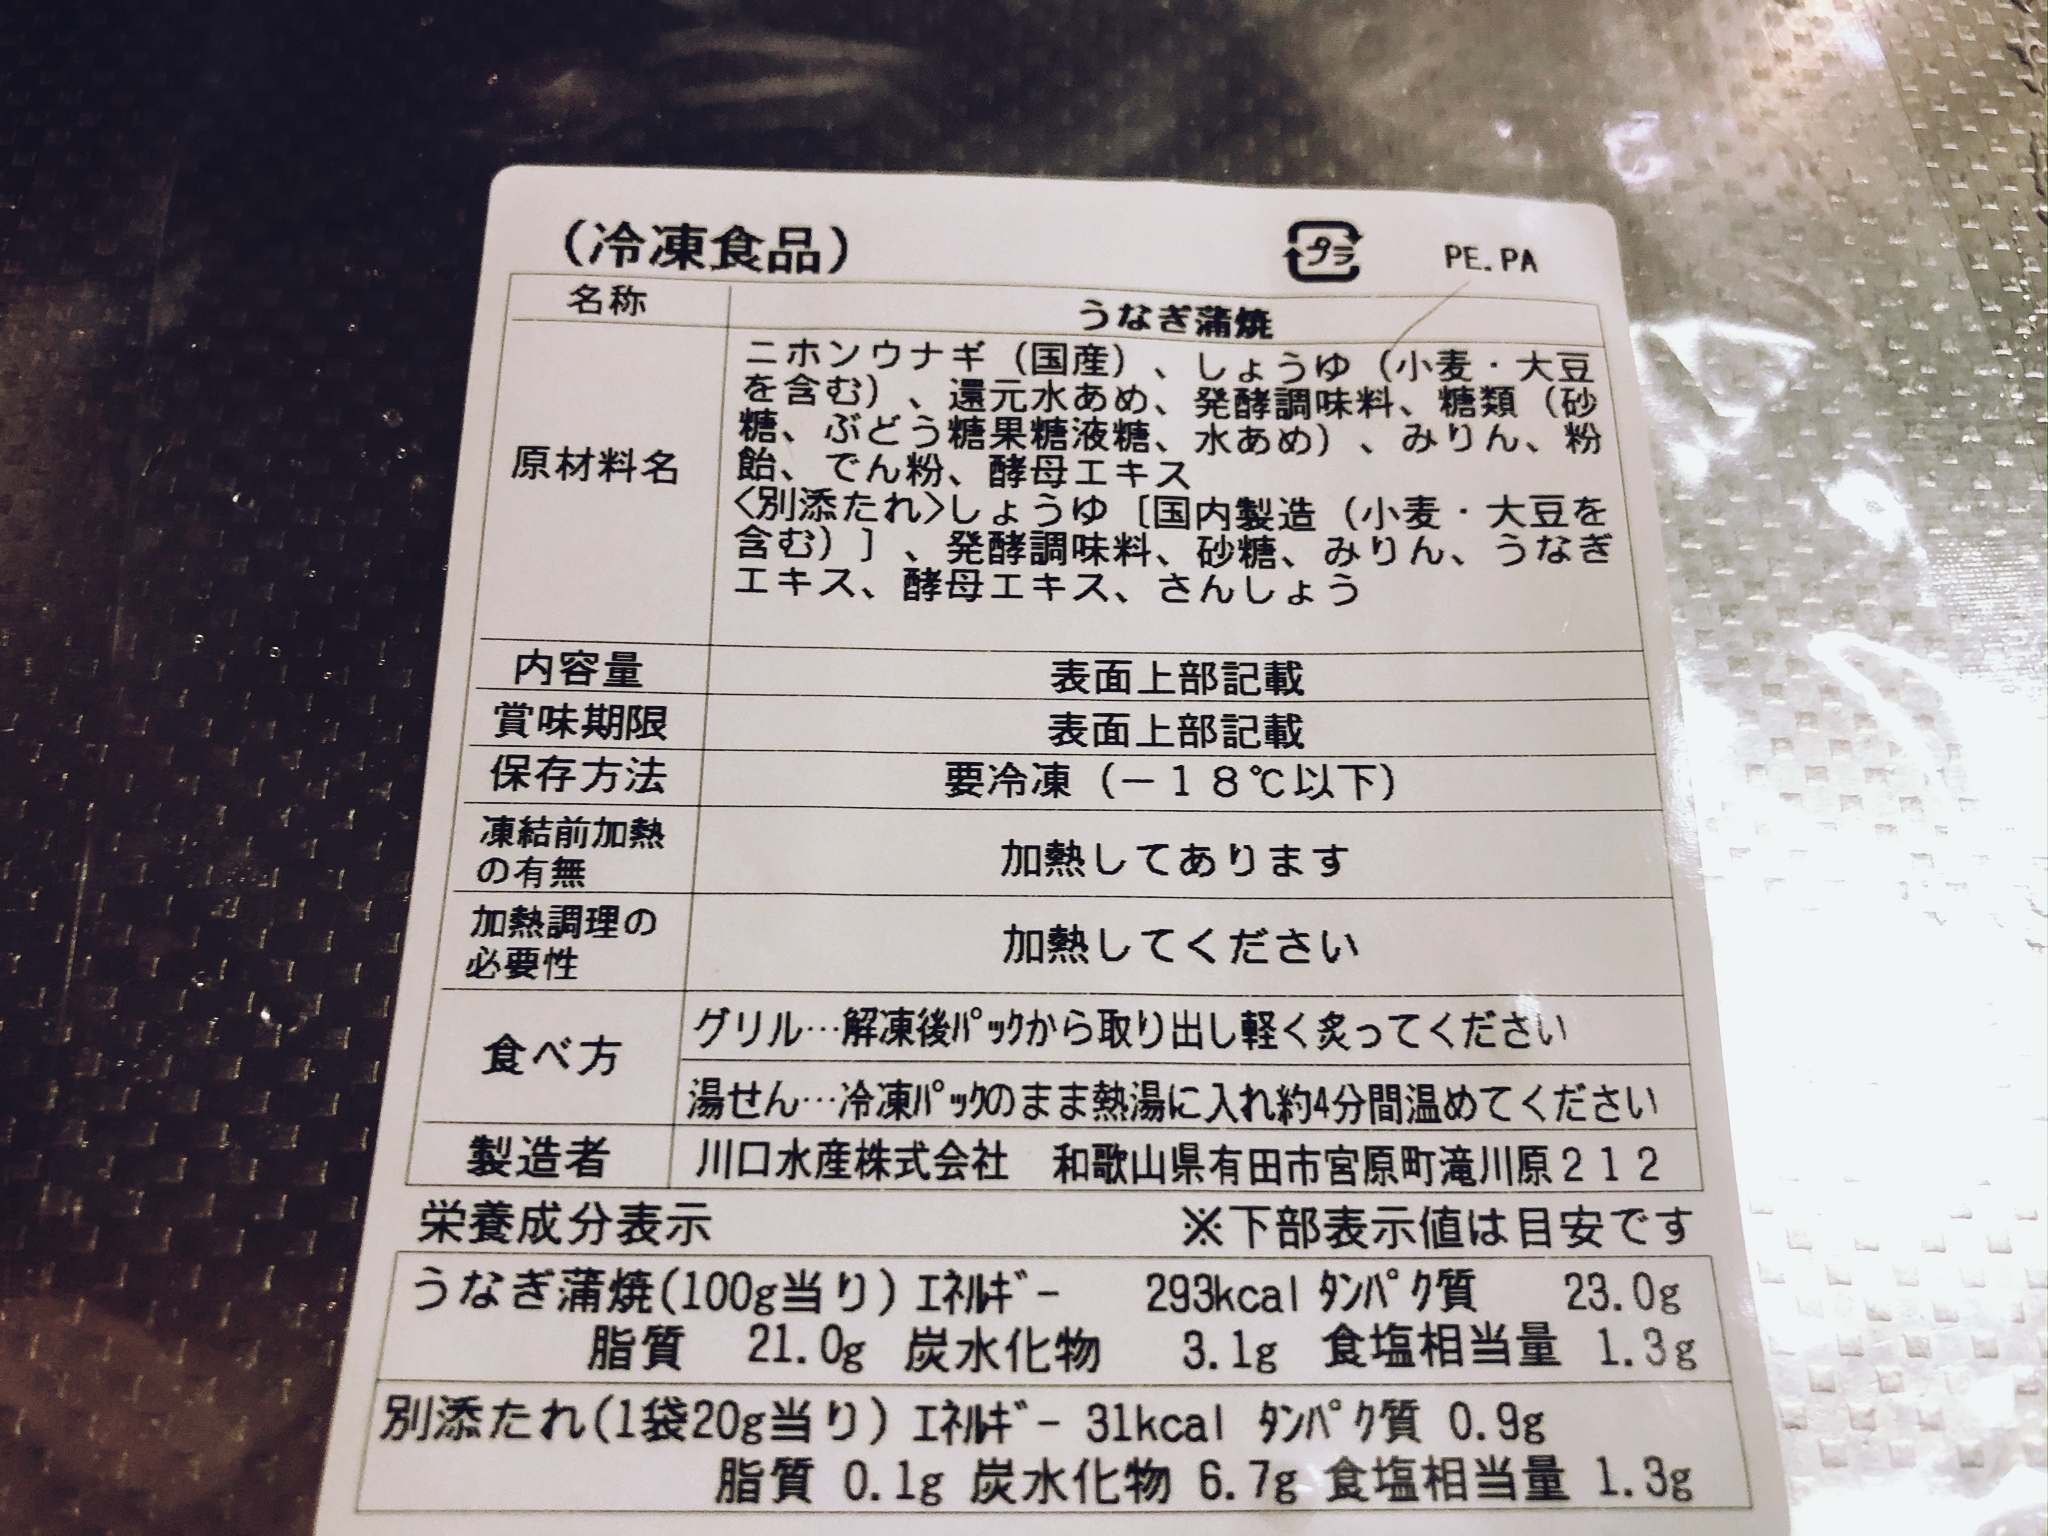 (冷凍食品)
プラ PE.PA
名称 うなぎ蒲焼
原材料名
ニホンウナギ（国産）、しょうゆ（小麦・大豆
を含む）、還元水あめ、発酵調味料、糖類（砂
糖、ぶどう糖果糖液糖、水あめ）、みりん、粉
飴、でん粉、酵母エキス
〈別添たれ〉しょうゆ［国内製造（小麦・大豆を
含む）］、発酵調味料、砂糖、みりん、うなぎ
エキス、酵母エキス、さんしょう
内容量 表面上部記載
賞味期限 表面上部記載
保存方法 要冷凍（－１８℃以下）
凍結前加熱
の有無
加熱してあります
加熱調理の
必要性
加熱してください
食べ方
グリル…解凍後ﾊﾟｯｸから取り出し軽く炙ってください
湯せん…冷凍ﾊﾟｯｸのまま熱湯に入れ約4分間温めてください
製造者 川口水産株式会社 和歌山県有田市宮原町滝川原２１２
栄養成分表示 ※下部表示値は目安です
うなぎ蒲焼(100g当り) ｴﾈﾙｷﾞｰ 293kcal ﾀﾝﾊﾟｸ質 23.0g
脂質 21.0g 炭水化物 3.1g 食塩相当量 1.3g
別添たれ(1袋20g当り) ｴﾈﾙｷﾞｰ 31kcal ﾀﾝﾊﾟｸ質 0.9g
脂質 0.1g 炭水化物 6.7g 食塩相当量 1.3g